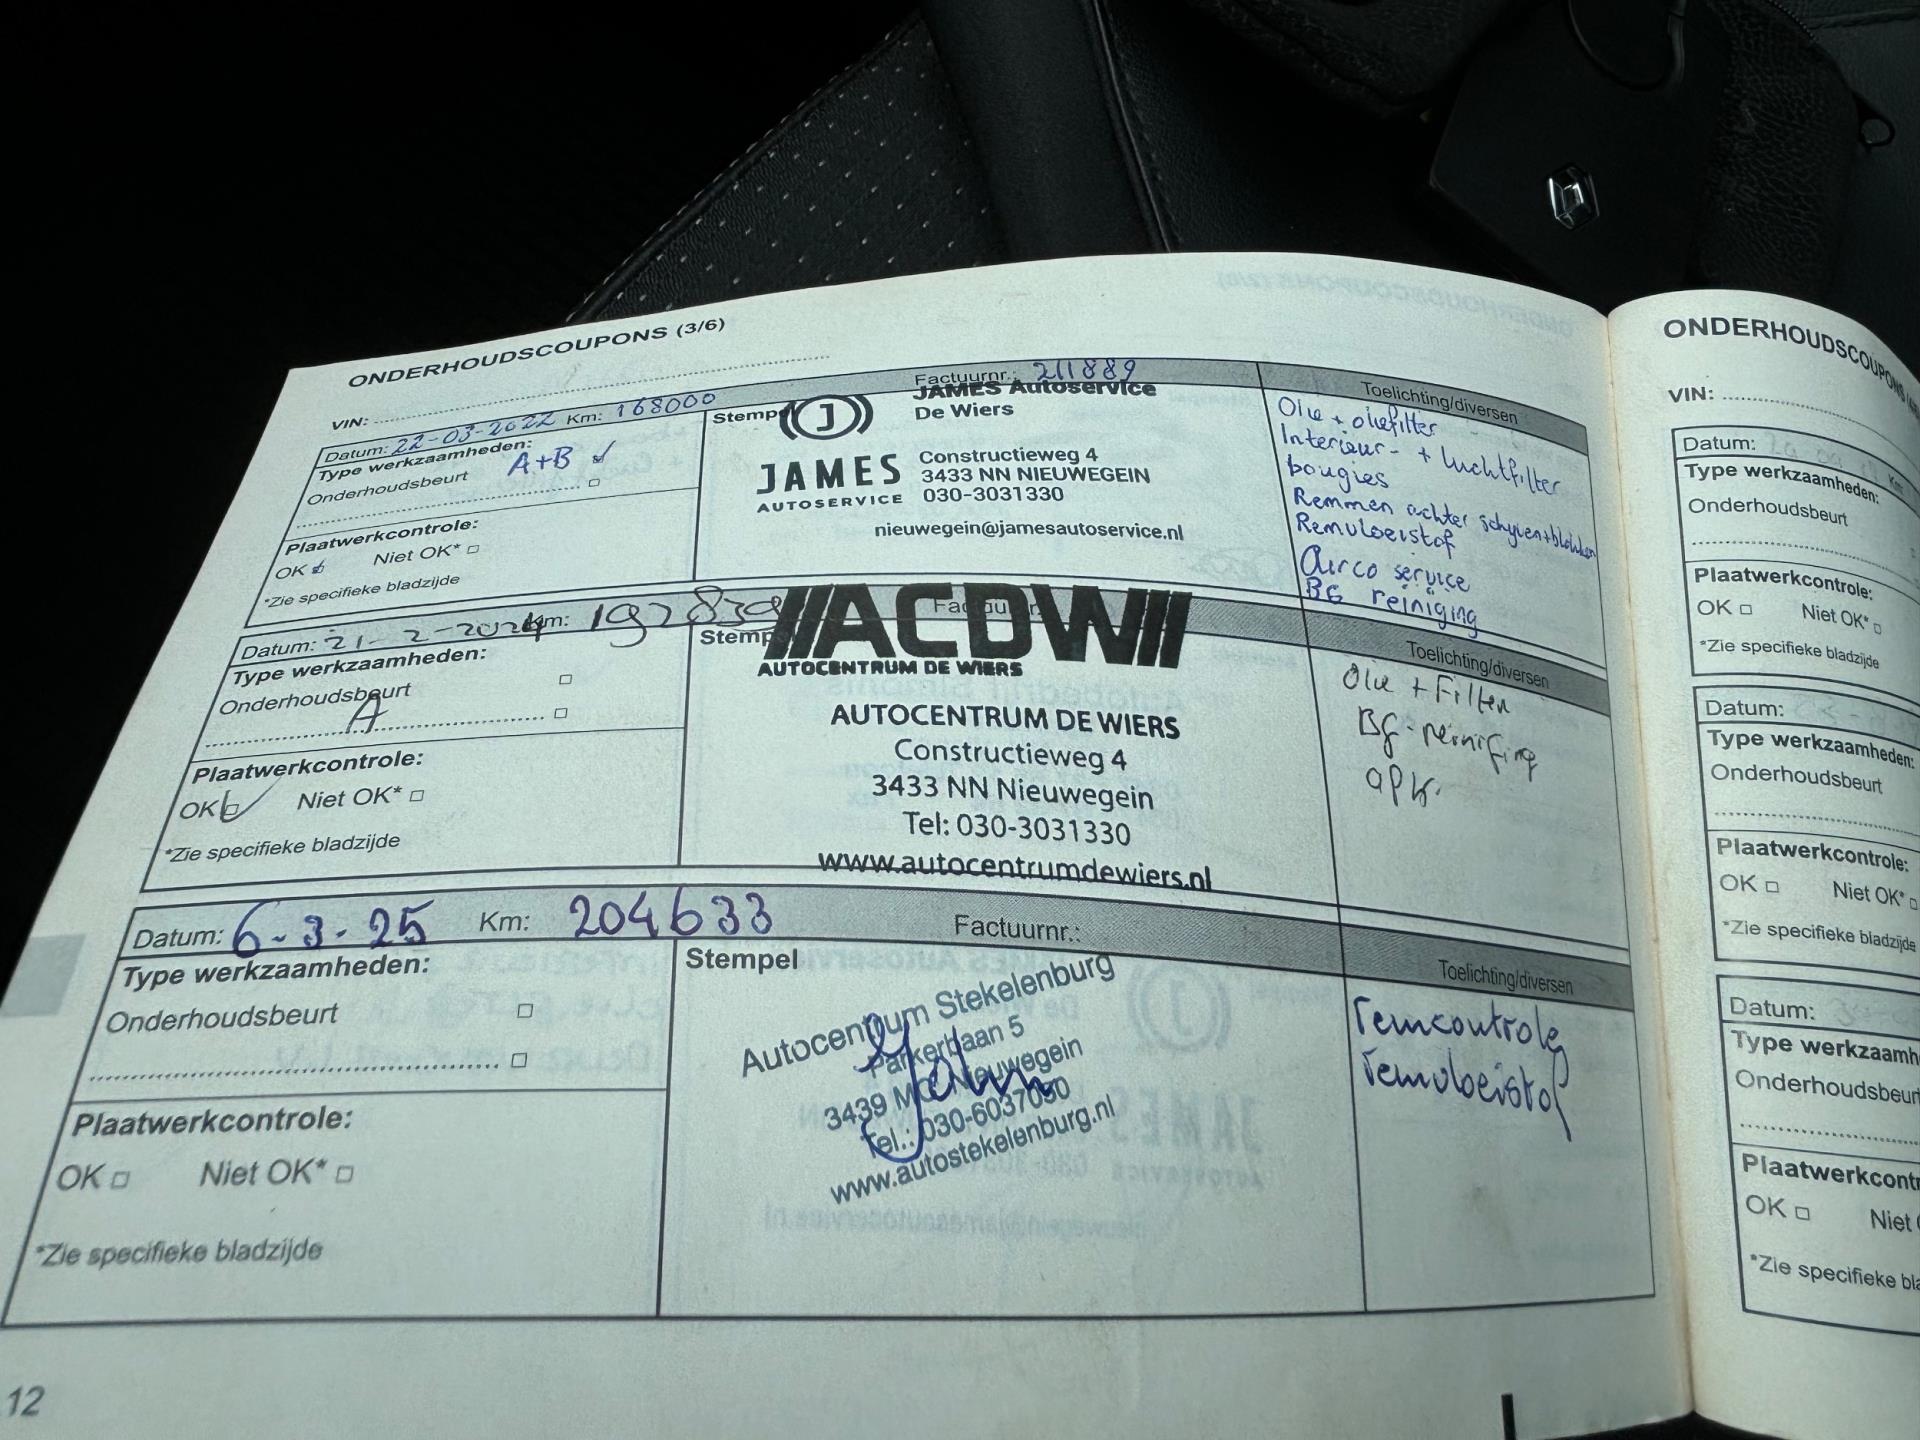 ONDERHOUDSCOUPONS (3/6)
VIN:
Datum: 22-03-2022 Km: 168000 Factuurnr.: 211889
Type werkzaamheden:
A+B
Onderhoudsbeurt
Plaatwerkcontrole:
OK Niet OK*
*Zie specifieke bladzijde
Stempel
J
JAMES
AUTOSERVICE
JAMES Autoservice
De Wiers
Constructieweg 4
3433 NN NIEUWEGEIN
030-3031330
nieuwegein@jamesautoservice.nl
Toelichting/diversen
Olie + oliefilter
Interieur- + luchtfilter
bougies
Remmen achter schijven+blokken
Remvloeistof
Airco service
BG reiniging
Datum: 21-2-2024 Km: 192839 Factuurnr.
Type werkzaamheden:
Onderhoudsbeurt
A
Plaatwerkcontrole:
OK Niet OK*
*Zie specifieke bladzijde
Stempel
//ACDW//
AUTOCENTRUM DE WIERS
AUTOCENTRUM DE WIERS
Constructieweg 4
3433 NN Nieuwegein
Tel: 030-3031330
www.autocentrumdewiers.nl
Toelichting/diversen
Olie + Filter
BG-reiniging
apk.
Datum: 6-3-25 Km: 204633 Factuurnr.:
Type werkzaamheden:
Onderhoudsbeurt
Plaatwerkcontrole:
OK Niet OK*
*Zie specifieke bladzijde
Stempel
Autocentrum Stekelenburg
Parkerbaan 5
3439 MC Nieuwegein
Tel.: 030-6037090
www.autostekelenburg.nl
Toelichting/diversen
remcontrole
remvloeistof
12
ONDERHOUDSCOUPONS
VIN:
Datum:
Type werkzaamheden:
Onderhoudsbeurt
Plaatwerkcontrole:
OK Niet OK*
*Zie specifieke bladzijde
Datum:
Type werkzaamheden:
Onderhoudsbeurt
Plaatwerkcontrole:
OK Niet OK*
*Zie specifieke bladzijde
Datum:
Type werkzaamh
Onderhoudsbeurt
Plaatwerkcontr
OK Niet
*Zie specifieke bla